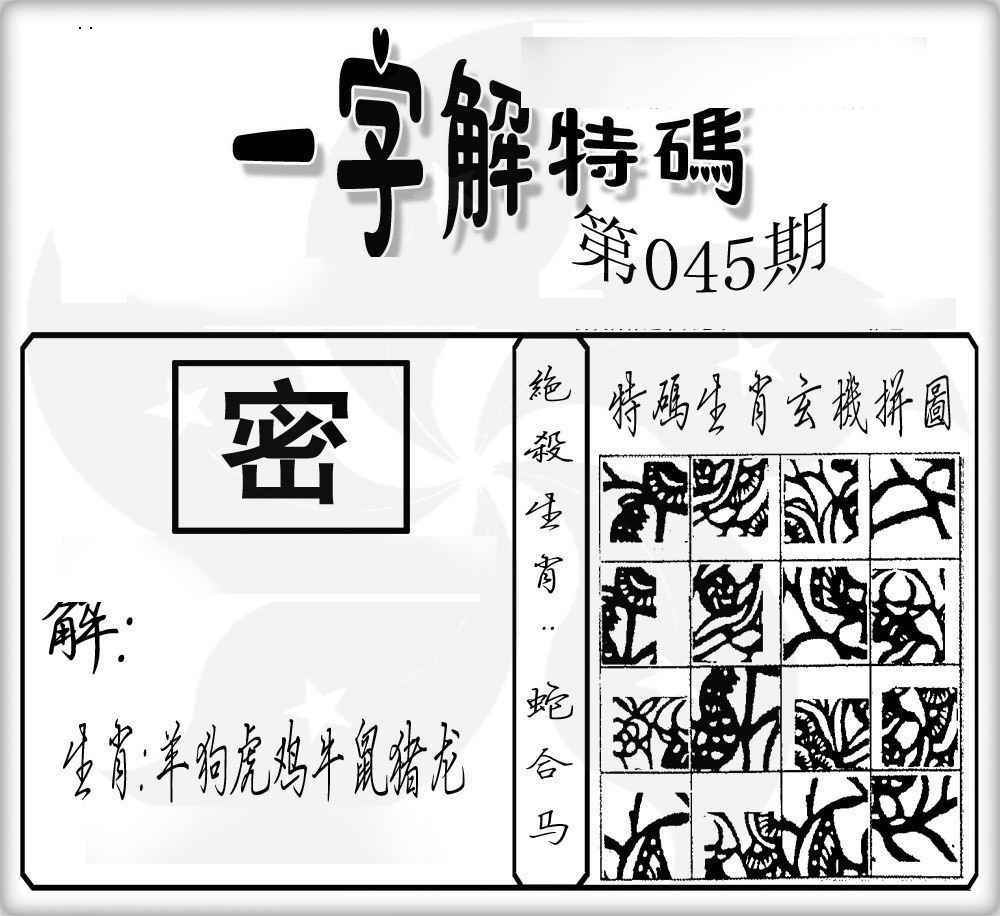 一字解特碼
第045期
密
解:
生肖:羊狗虎鸡牛鼠猪龙
絶殺生肖:蛇合马
特碼生肖玄機拼圖